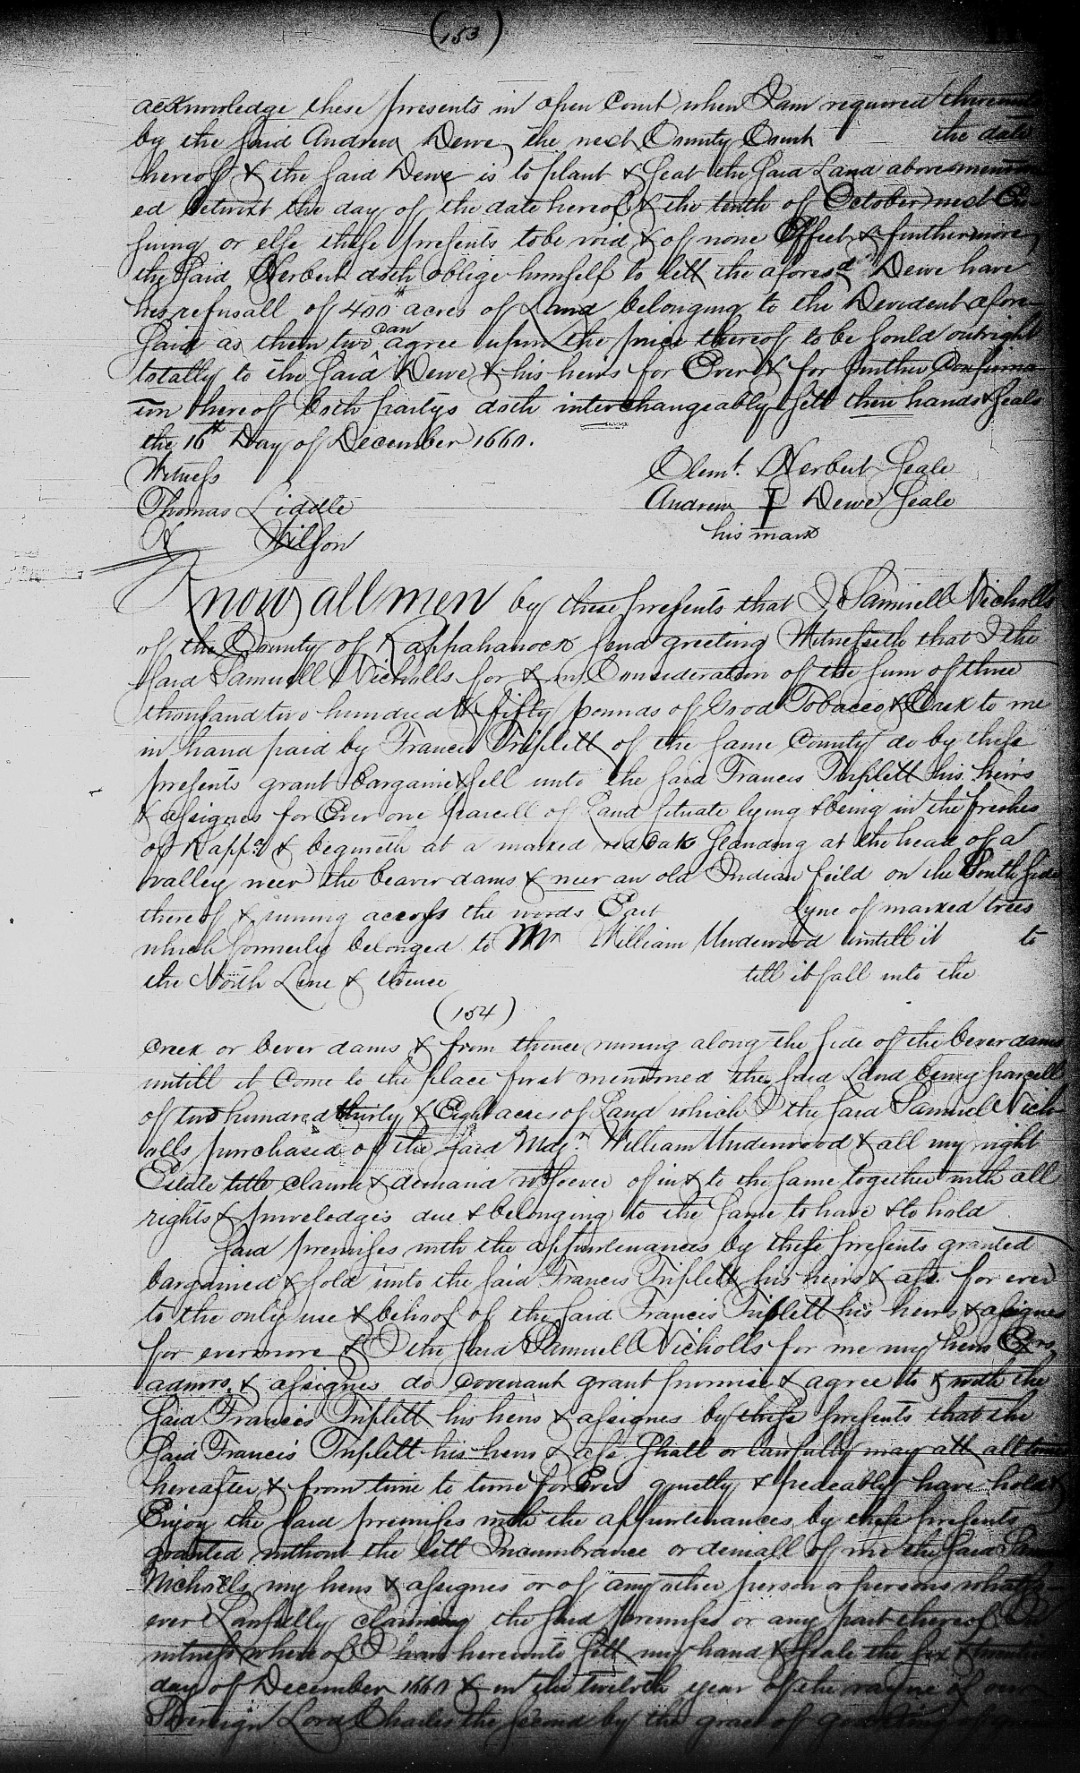 (153)
acknowledge these presents in open Court when I am required thereunto
by the said Andrew Dewe the next County Court the date
hereof & the said Dewe is to plant & seat the said Land abovemention
ed betwixt the day of the date hereof & the tenth of October next En
suing or else these presents to be void & of none Effect & furthermore
the said Herbert doth oblige himself to lett the aforesd Dewe have
his refusall of 400 acres of Land belonging to the Devident afore
said as them two can agree upon the price thereof to be sould outright
totally to the said Dewe & his heirs for Ever & for further Confirma
tion thereof both partys doth interchangeably sett their hands & seals
the 16th Day of December 1660.
Witness Clemt. Herbert Seale
Thomas Liddle Andrew I Dewe Seale
Wilson his mark
Know all men by these presents that I Samuell Nicholls
of the County of Rappahanock send greeting Witnesseth that I the
said Samuell Nicholls for & in Consideration of the sum of three
thousand two hundred & fifty pounds of Good Tobacco & Cask to me
in hand paid by Francis Triplett of the same County do by these
presents grant bargaine & sell unto the said Francis Triplett his heirs
& assignes for Ever one parcell of Land situate lying & being in the freshes
of Rappa & begineth at a marked red Oake standing at the head of a
valley neer the beaver dams & neer an old Indian feild on the South side
thereof & runing across the woods East Lyne of marked trees
which formerly belonged to Mr William Underwood untill it to
the North Line & thence till it fall into the
(154)
Creek or bever dams & from thence runing along the side of the bever dams
untill it Come to the place first mentioned the said Land being parcell
of two hundred thirty & Eight acres of Land which I the said Samuel Nich
olls purchased of the said Majr. William Underwood & all my right
Estate title claime & demand whatsoever of in & to the same together with all
rights & priveledges due & belonging to the same to have & to hold
said premises with the appurtenances by these presents granted
bargained & sold unto the said Francis Triplett his heirs & ass. for ever
to the only use & behoof of the said Francis Triplett his heirs & assignes
for evermore & I the said Samuell Nicholls for me my heirs Exrs
admrs. & assignes do covenant grant promise & agree to & with the
said Francis Triplett his heirs & assignes by these presents that the
said Francis Triplett his heirs & ass shall or lawfully may att all times
hereafter & from time to time for Ever quietly & peaceably have hold &
Enjoy the said premises with the appurtenances by these presents
granted without the lett Incumbrance or deniall of me the said Sam
Nicholls my heirs & assignes or of any other person or persons whatso
ever Lawfully claiming the said premises or any part thereof In
witness whereof I have hereunto sett my hand & seale the six & twentieth
day of December 1660 & in the twelveth year of the raigne of our
Sovereign Lord Charles the second by the grace of god King